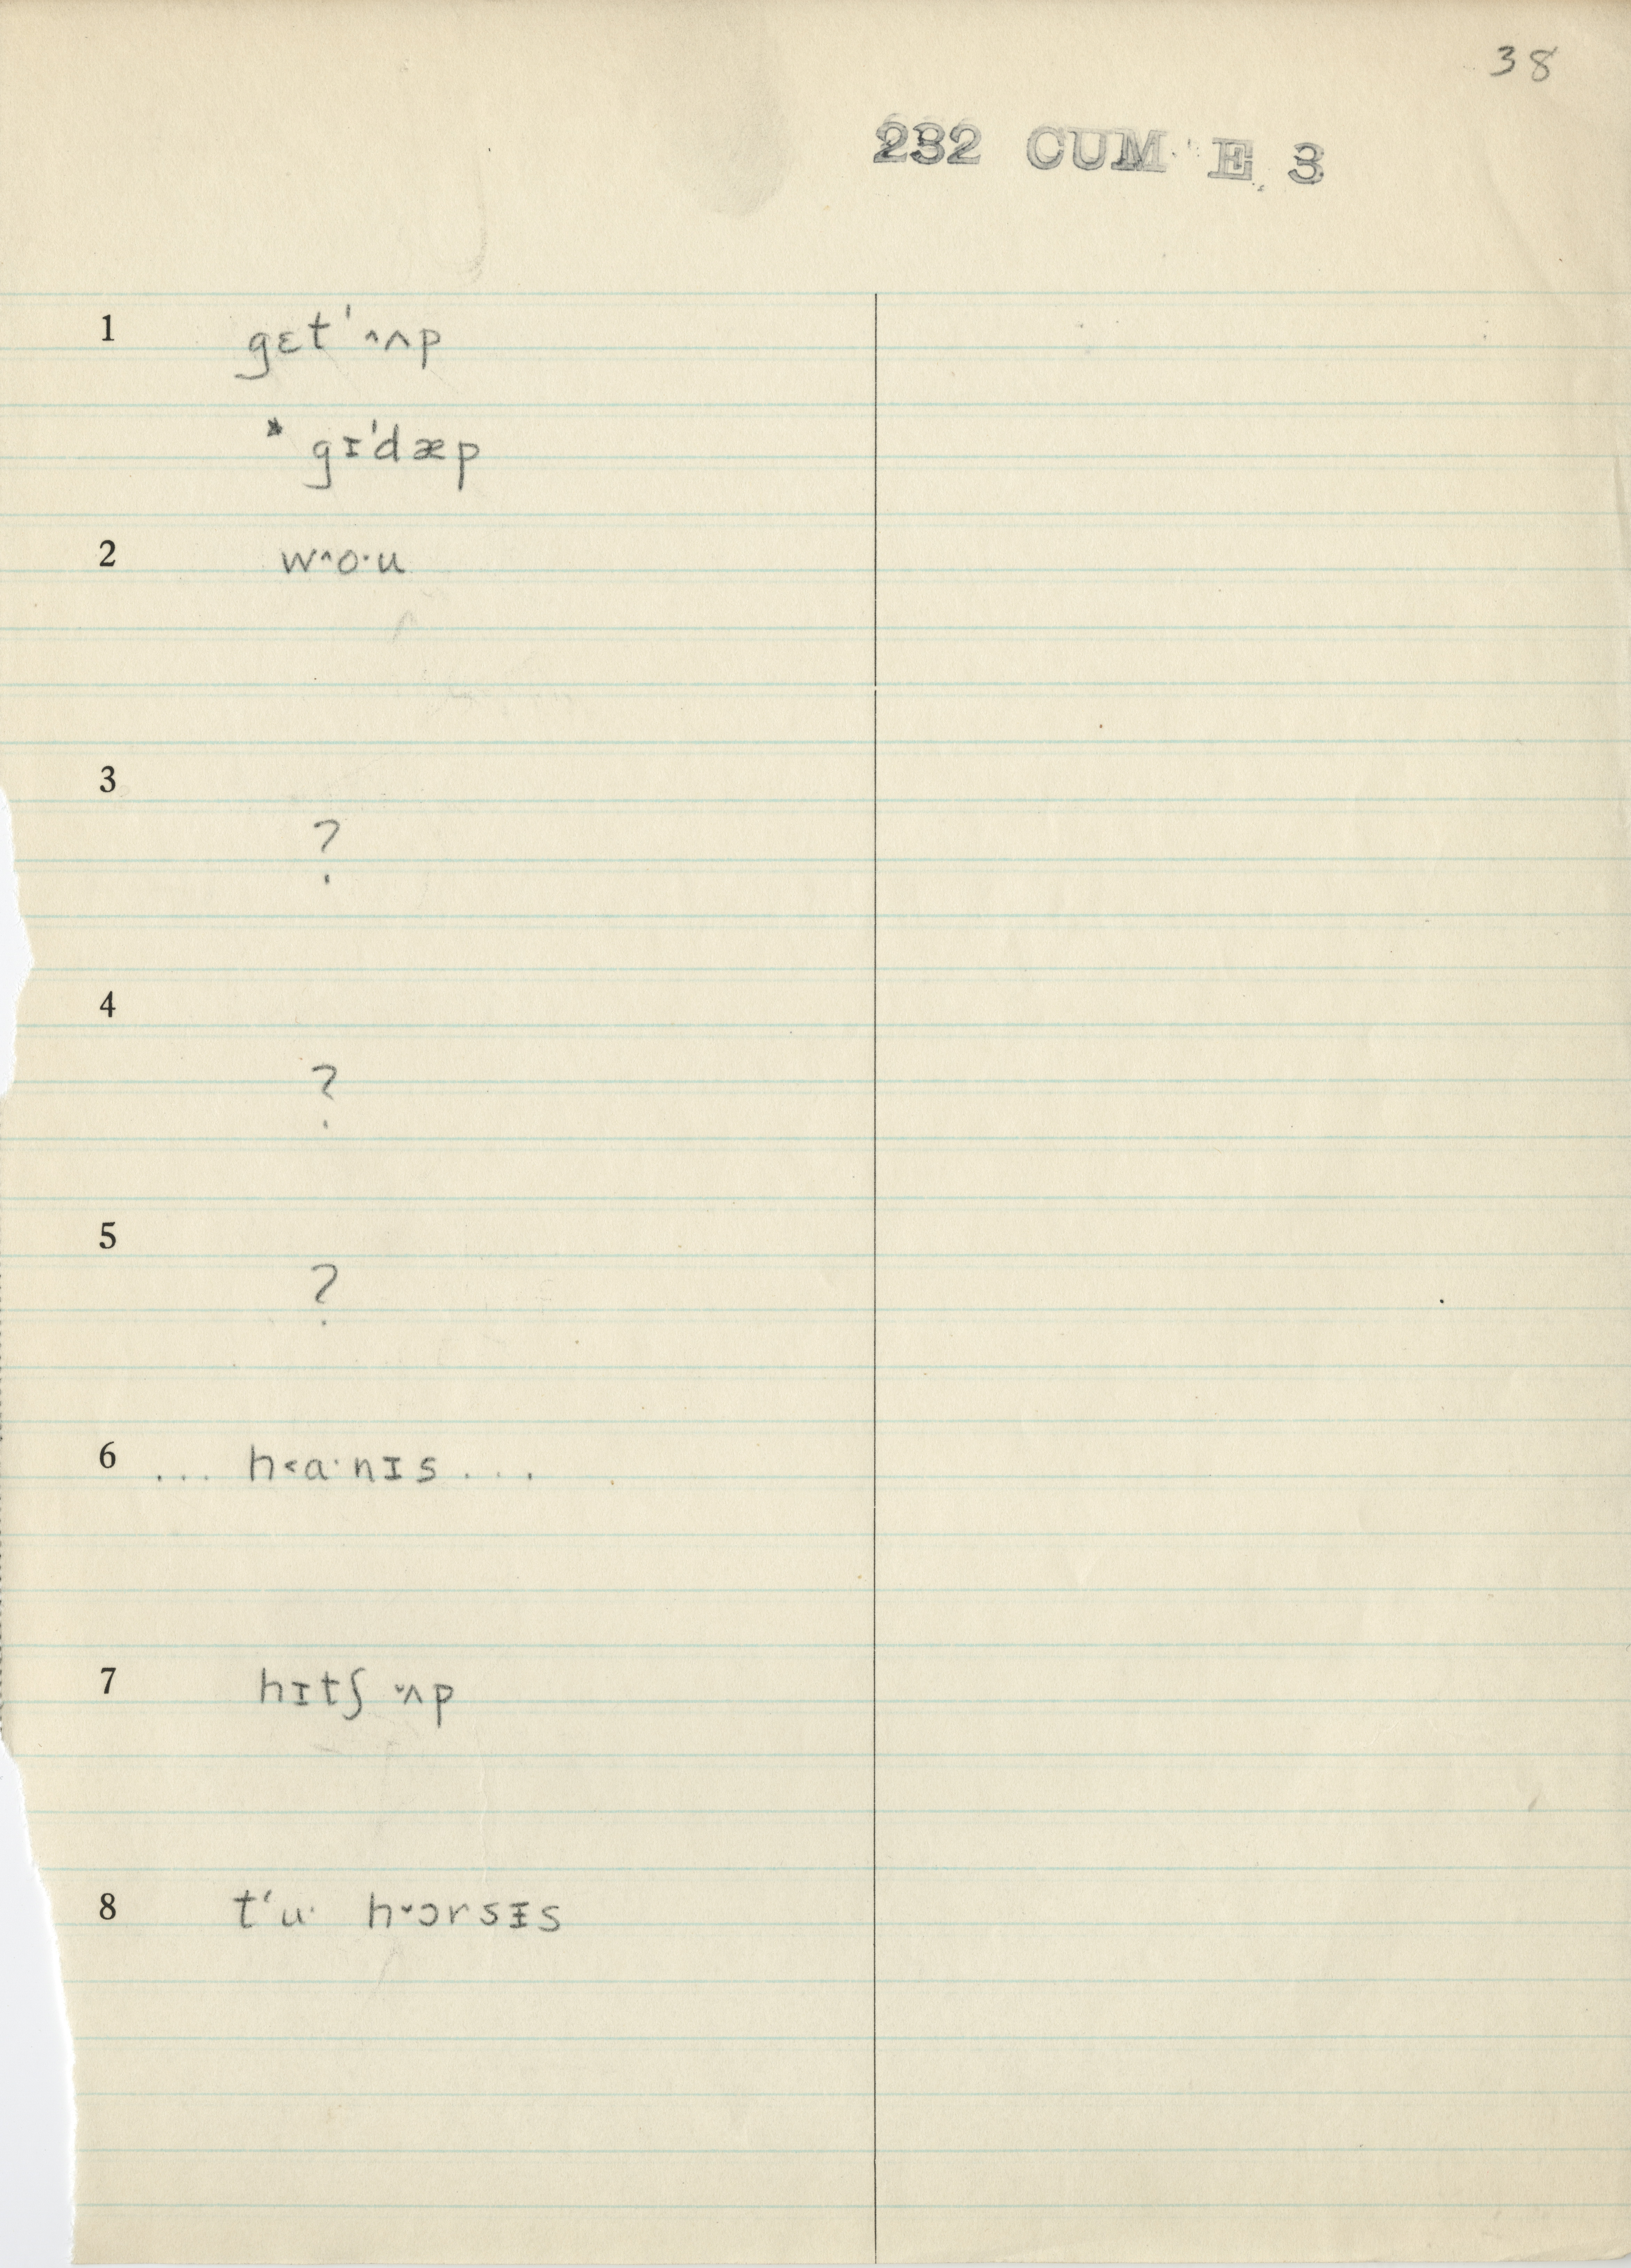 38
232 CUM E 3
1 gɛt'˄ʌp
* gɪ'dæp
2 w˄o·u
3
?
4
?
5
?
6 ... h˂a·nɪs ...
7 hɪtʃ ˅ʌp
8 t‘u· h˅ɔrsᵻs